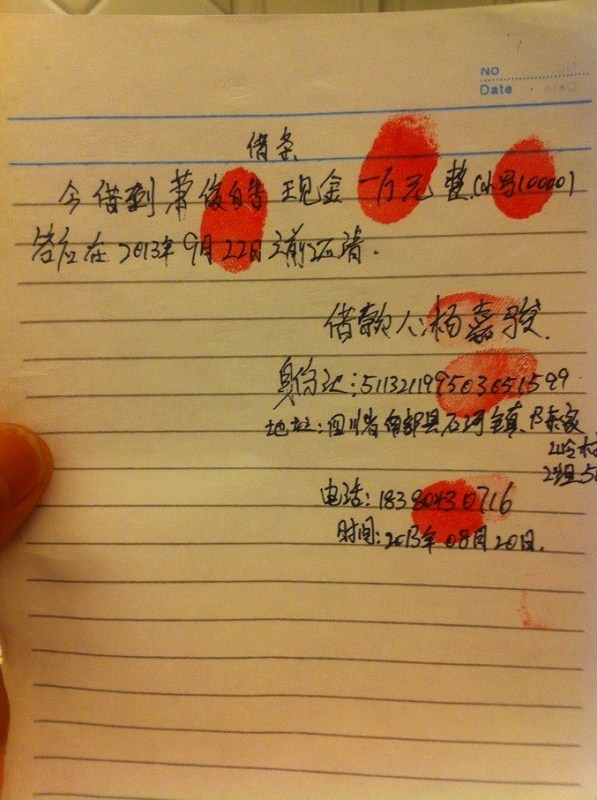 No
Date
借条
今借到萧俊皓现金一万元整(小写10000)
答应在2013年9月22日之前还清.
借款人:杨嘉骏.
身份证:511321199503051599
地址:四川省南部县石河镇
2组
电话:18380430716
时间:2013年08月20日.